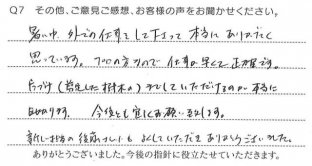 Q7 その他、ご意見ご感想、お客様の声をお聞かせください。
暑い中、外での仕事をして下さって本当にありがたく
思っています。プロの方なので仕事が早くて正確です。
片づけ(剪定した樹木の)もしていただけるのが本当に
助かります。今後とも宜しくお願い致します。
新しい担当の後藤さんもよくしていただきありがとうございました。
ありがとうございました。今後の指針に役立たせていただきます。